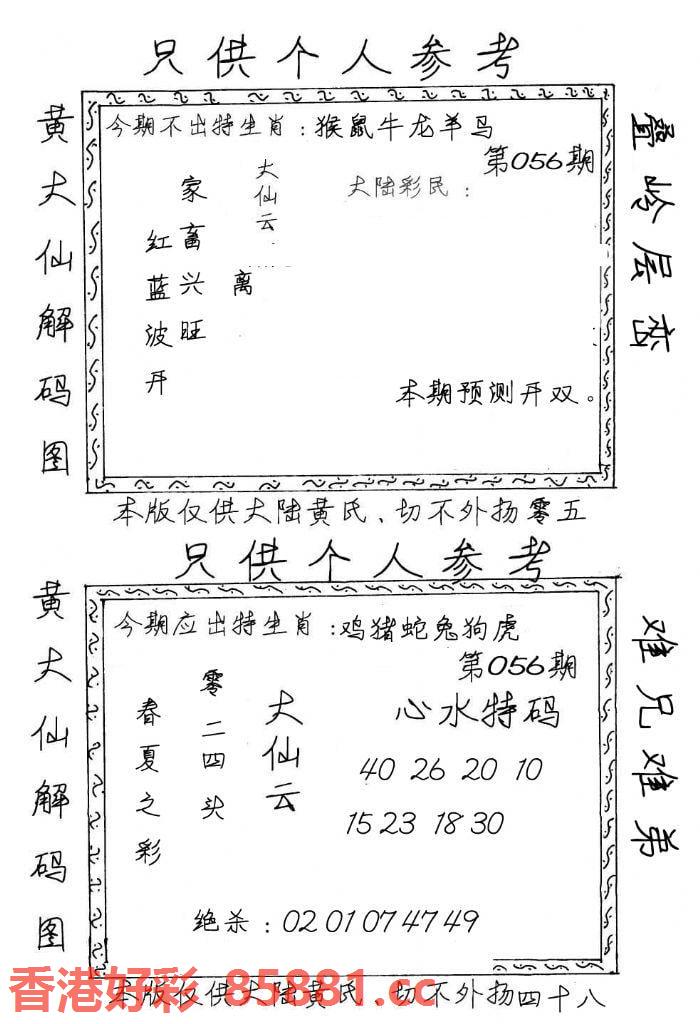 只供个人参考
黄大仙解码图
今期不出特生肖：猴鼠牛龙羊马
第056期
大陆彩民：
大仙云
家畜兴旺
红蓝波开
离
本期预测开双。
叠岭层峦
本版仅供大陆黄氏、切不外扬零五
只供个人参考
黄大仙解码图
今期应出特生肖：鸡猪蛇兔狗虎
第056期
心水特码
大仙云
零二四头
春夏之彩
40 26 20 10
15 23 18 30
绝杀：02 01 07 47 49
难兄难弟
香港好彩 85881.cc
本版仅供大陆黄氏、切不外扬四十八